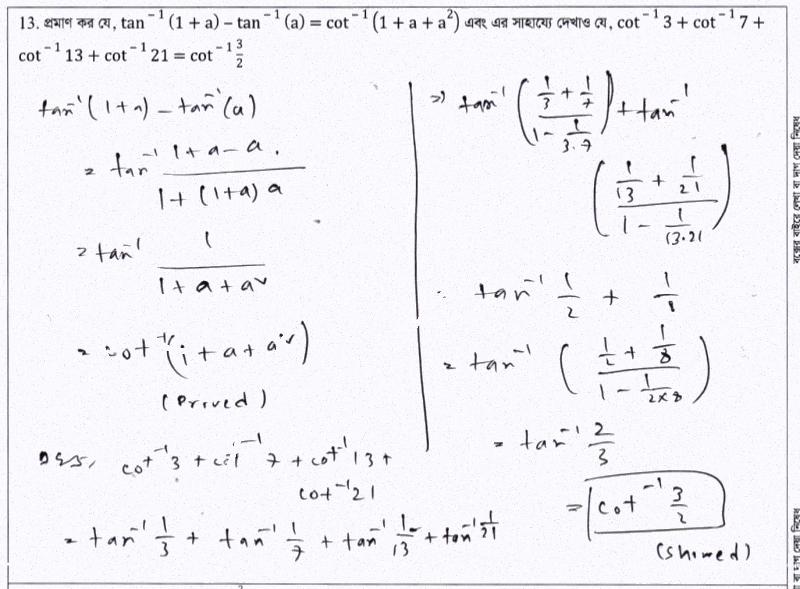 13. প্রমাণ কর যে, tan⁻¹ (1 + a) – tan⁻¹ (a) = cot⁻¹ (1 + a + a²) এবং এর সাহায্যে দেখাও যে, cot⁻¹ 3 + cot⁻¹ 7 +
cot⁻¹ 13 + cot⁻¹ 21 = cot⁻¹ 3/2
tan⁻¹ (1+a) – tan⁻¹ (a)
= tan⁻¹ (1+a–a)/(1+(1+a)a)
= tan⁻¹ 1/(1+a+a²)
= cot⁻¹ (1+a+a²)
(Proved)
cot⁻¹ 3 + cot⁻¹ 7 + cot⁻¹ 13 +
cot⁻¹ 21
= tan⁻¹ 1/3 + tan⁻¹ 1/7 + tan⁻¹ 1/13 + tan⁻¹ 1/21
⇒ tan⁻¹ ((1/3 + 1/7)/(1 – 1/3.7)) + tan⁻¹
((1/13 + 1/21)/(1 – 1/13.21))
tan⁻¹ 1/2 + 1/8
= tan⁻¹ ((1/2 + 1/8)/(1 – 1/2×8))
= tan⁻¹ 2/3
= cot⁻¹ 3/2
(Showed)